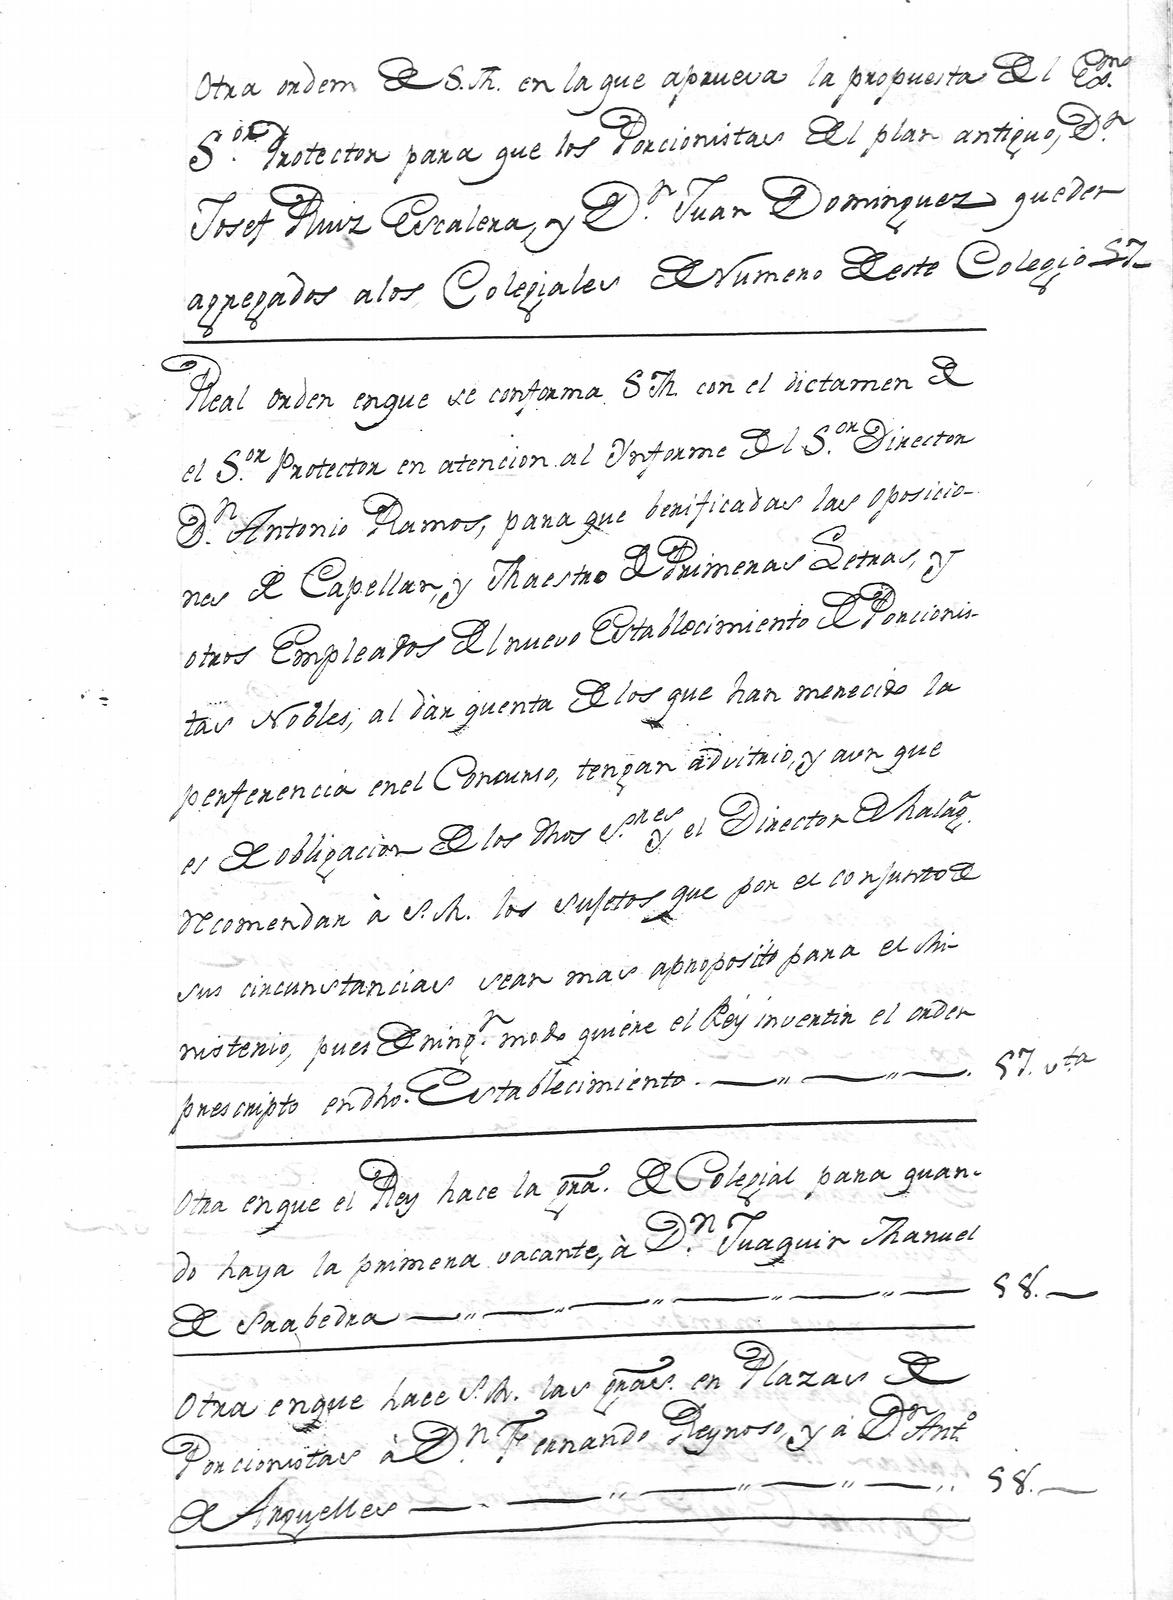 Otra ordem de S.M. en la que aprueva la propuesta del Exmo.
S.or Protector para que los Porcionistas del plan antiguo, D.n
Josef Ruiz Escalera, y D.n Juan Dominguez queden
agregados a los Colegiales de Numero de este Colegio 57
Real orden enque se conforma S.M. con el dictamen de
el S.or Protector en atencion al Ynforme del S.or Director
D.n Antonio Ramos, para que berificadas las oposicio-
nes de Capellan, y Maestro de Primeras Letras, y
otros Empleados del nuevo Establecimiento de Porcionis-
tas Nobles, al dàr quenta de los que han merecido la
perferencia enel Concurso, tengan advitrio, y aun que
es de obligacion de los dhos S.res y el Director de Malag.a
recomendar à S.M. los sujetos que por el conjunto de
sus circunstancias sean mas aproposito para el Mi-
nisterio, pues de ning.n modo quiére el Réy invertir el orden
prescripto endho. Establecimiento 57. vta
Otra enque el Rey hace la gra. de Colegial para quan-
do haya la primera vacante, à D.n Juaquin Manuel
de Saabedra 58.
Otra enque hace S.M. las gras. en Plazas de
Porcionistas à D.n Fernando Reynoso, y à D.n Ant.o
de Arguelles 58.